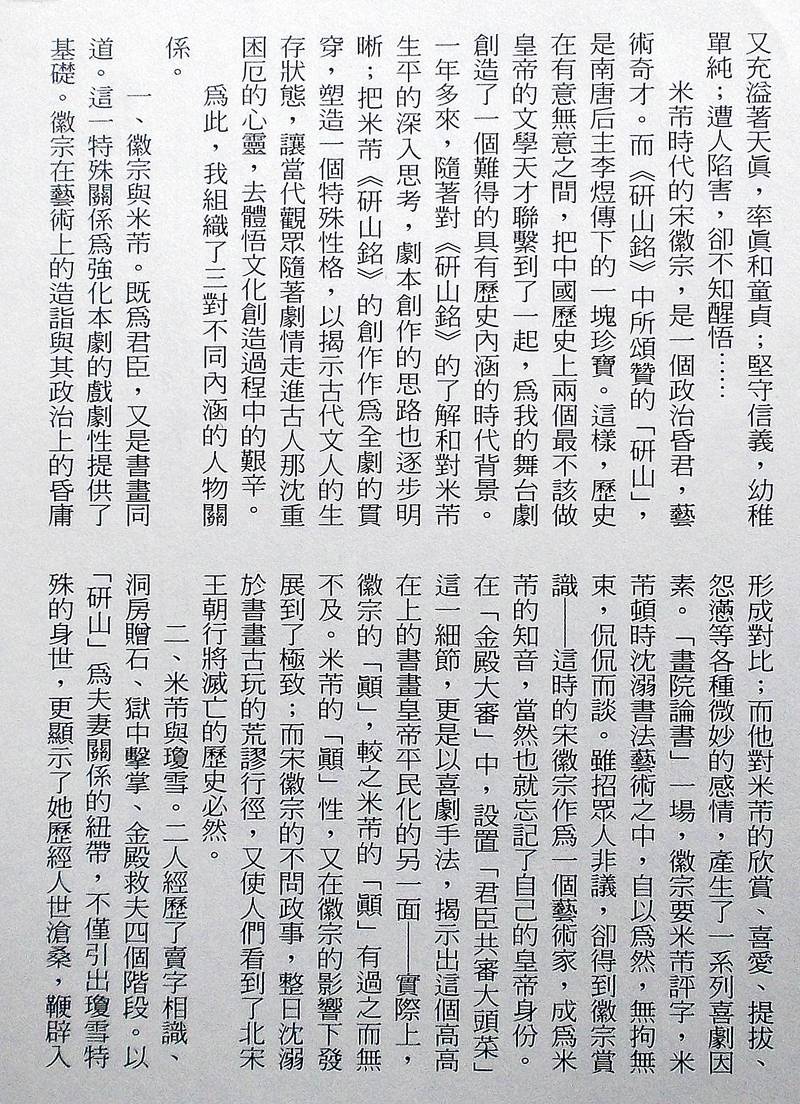 又充溢著天眞，率眞和童貞；堅守信義，幼稚
單純；遭人陷害，卻不知醒悟……
米芾時代的宋徽宗，是一個政治昏君，藝
術奇才。而《研山銘》中所頌贊的「研山」，
是南唐后主李煜傳下的一塊珍寶。這樣，歷史
在有意無意之間，把中國歷史上兩個最不該做
皇帝的文學天才聯繫到了一起，爲我的舞台劇
創造了一個難得的具有歷史內涵的時代背景。
一年多來，隨著對《研山銘》的了解和對米芾
生平的深入思考，劇本創作的思路也逐步明
晰；把米芾《研山銘》的創作作爲全劇的貫
穿，塑造一個特殊性格，以揭示古代文人的生
存狀態，讓當代觀眾隨著劇情走進古人那沈重
困厄的心靈，去體悟文化創造過程中的艱辛。
爲此，我組織了三對不同內涵的人物關
係。
一、徽宗與米芾。既爲君臣，又是書畫同
道。這一特殊關係爲強化本劇的戲劇性提供了
基礎。徽宗在藝術上的造詣與其政治上的昏庸
形成對比；而他對米芾的欣賞、喜愛、提拔、
怨懣等各種微妙的感情，產生了一系列喜劇因
素。「畫院論書」一場，徽宗要米芾評字，米
芾頓時沈溺書法藝術之中，自以爲然，無拘無
束，侃侃而談。雖招眾人非議，卻得到徽宗賞
識——這時的宋徽宗作爲一個藝術家，成爲米
芾的知音，當然也就忘記了自己的皇帝身份。
在「金殿大審」中，設置「君臣共審大頭菜」
這一細節，更是以喜劇手法，揭示出這個高高
在上的書畫皇帝平民化的另一面——實際上，
徽宗的「顚」，較之米芾的「顚」有過之而無
不及。米芾的「顚」性，又在徽宗的影響下發
展到了極致；而宋徽宗的不問政事，整日沈溺
於書畫古玩的荒謬行徑，又使人們看到了北宋
王朝行將滅亡的歷史必然。
二、米芾與瓊雪。二人經歷了賣字相識、
洞房贈石、獄中擊掌、金殿救夫四個階段。以
「研山」爲夫妻關係的紐帶，不僅引出瓊雪特
殊的身世，更顯示了她歷經人世滄桑，鞭辟入